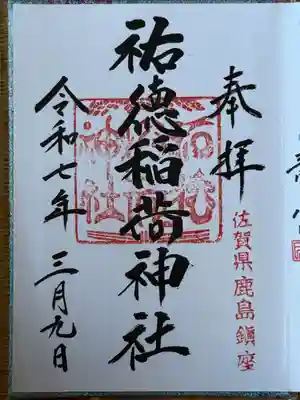 奉拝
佐賀県鹿島鎮座
祐徳稲荷神社
令和七年 三月九日